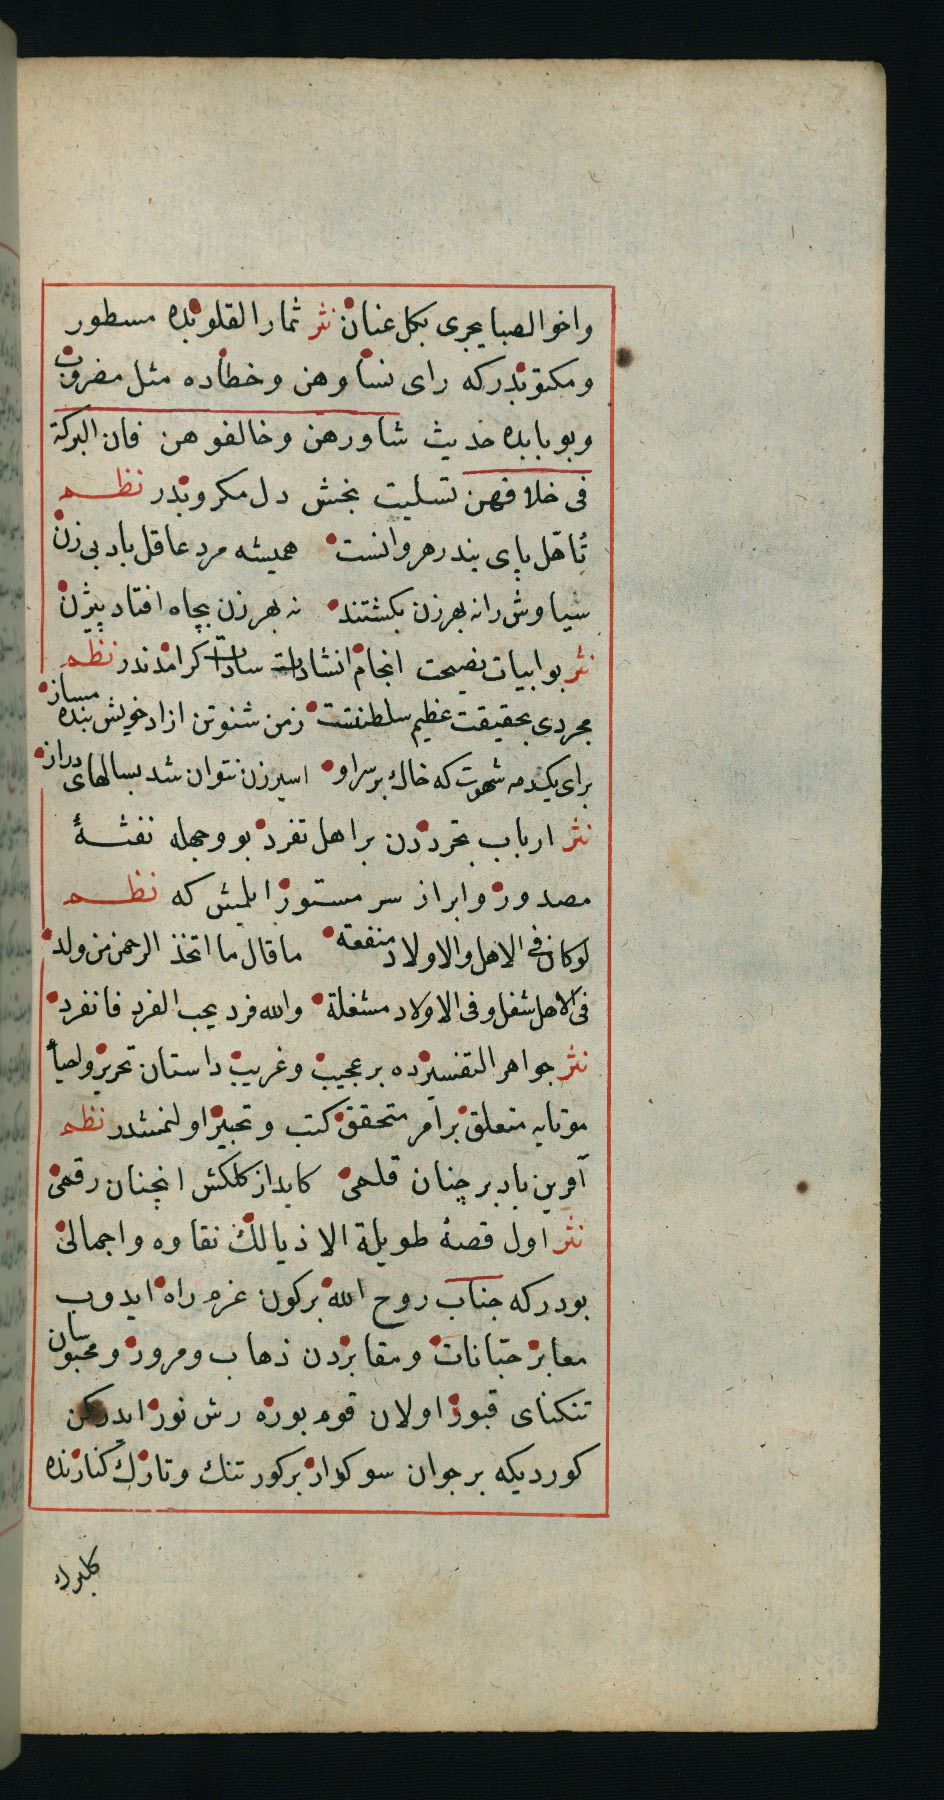 واخو الصبا يجرى بكل عنان نثر ثمار القلوبده مسطور
ومكتوبدركه راى نساوهن وخطاده مثل مضروب
وبو بابده حديث شاورهن وخالفوهن فان البركة
فى خلافهن تسليت بخش دل مكروبدر نظم
تأهل پاى بند رهروانست هميشه مرد عاقل باد بى زن
سياوش رانه بهر زن بكشتند نه بهر زن بچاه افتاد بيژن
نثر بو ابيات نصيحت انجام انشادات سادات كرامدندر نظم
مجردى بحقيقت عظيم سلطنتست زمن شنو تن ازاد خويش بنده مساز
براى يكدمه شهوت كه خاك بر سر او اسير زن نتوان شد بسالهاى دراز
نثر ارباب تجرددن بر اهل تفرد بو وجهله نفثۀ
مصدور وابراز سر مستور ايلمش كه نظم
لوكان فى الاهل والاولاد منفعة ما قال ما اتخذ الرحمن من ولد
فى الاهل شغل وفى الاولاد مشغلة والله فرد يحب الفرد فانفرد
نثر جواهر التفسيرده بر عجيب وغريب داستان تحرير واحياء
موتايه متعلق بر امر متحقق كتب وتحبير اولنمشدر نظم
آفرين باد بر چنان قلمى كايد از كلكش انچنان رقمى
نثر اول قصۀ طويلة الاذيالك نقاوه واجمالى
بودركه جناب روح الله بركون عزم راه ايدوب
معابر جبانات ومقابردن ذهاب ومرور ومحبوسان
تنكناى قبور اولان قوم بوره رش نور ايدركن
كورديكه بر جوان سوكوار بركور تنك وتارك كنارنده
كلبرك